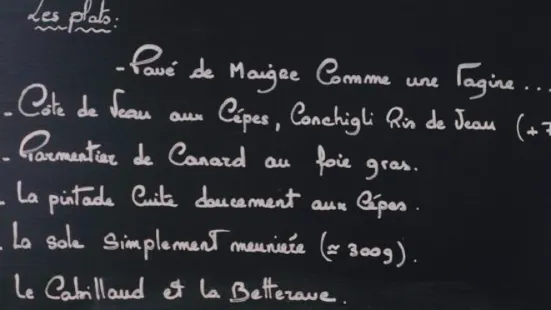 Les plats:
- Pavé de Maigre Comme une Tagine...
- Côte de Veau aux Cèpes, Conchigli Ris de Veau (+7
- Parmentier de Canard au foie gras.
- La pintade Cuite doucement aux Cèpes.
- La sole Simplement meunière (≈ 300g).
Le Cabillaud et la Betterave.